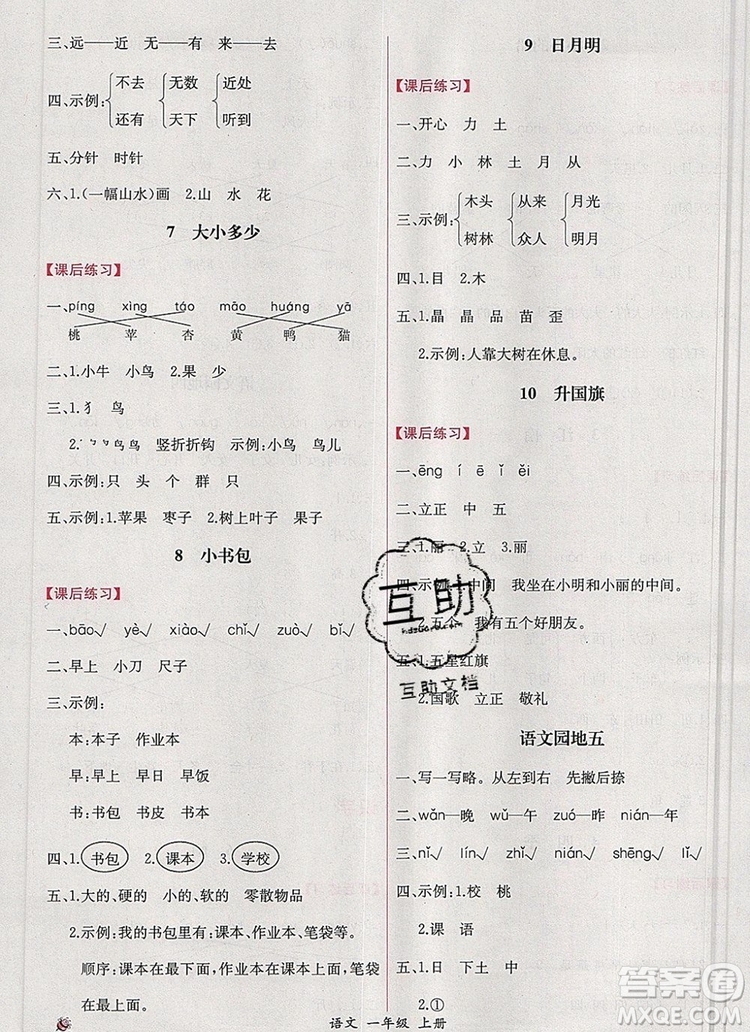 三、远——近 无——有 来——去
四、示例: 不去 无数 近处
还有 天下 听到
五、分针 时针
六、1.(一幅山水)画 2.山 水 花
7 大小多少
【课后练习】
一、píng xìng táo māo huáng yā
桃 苹 杏 黄 鸭 猫
二、1.小牛 小鸟 2.果 少
三、1.犭 鸟
竖折折钩 示例:小鸟 鸟儿
四、示例:只 头 个 群 只
五、示例:1.苹果 枣子 2.树上叶子 果子
8 小书包
【课后练习】
一、bāo√ yè√ xiào√ chǐ√ zuò√ bǐ√
二、早上 小刀 尺子
三、示例:
本:本子 作业本
早:早上 早日 早饭
书:书包 书皮 书本
四、1.书包 2.课本 3.学校
五、1.大的、硬的 小的、软的 零散物品
2.示例:我的书包里有:课本、作业本、笔袋等。
顺序:课本在最下面,作业本在课本上面,笔袋
在最上面。
9 日月明
【课后练习】
一、开心 力 土
二、力 小 林 土 月 从
三、示例: 木头 从来 月光
树林 众人 明月
四、1.目 2.木
五、1.晶 晶 品 苗 歪
2.示例:人靠大树在休息。
10 升国旗
【课后练习】
一、ēng í ē ǐ ěi
二、立正 中 五
三、1.丽 2.立 3.丽
四、示例:1.中间 我坐在小明和小丽的中间。
2.五个 我有五个好朋友。
五、1.五星红旗
2.国歌 立正 敬礼
语文园地五
一、写一写略。从左到右 先撇后捺
二、wǎn—晚 wǔ—午 zuó—昨 nián—年
三、nǐ√ lín√ nián√ shēng√ lì√
四、示例:1.校 桃
2.课 语
五、1.日 下土 中
2.①
语文 一年级 上册
互助
hdzuoru.com
互助文档
答案圈
MXQE.COM